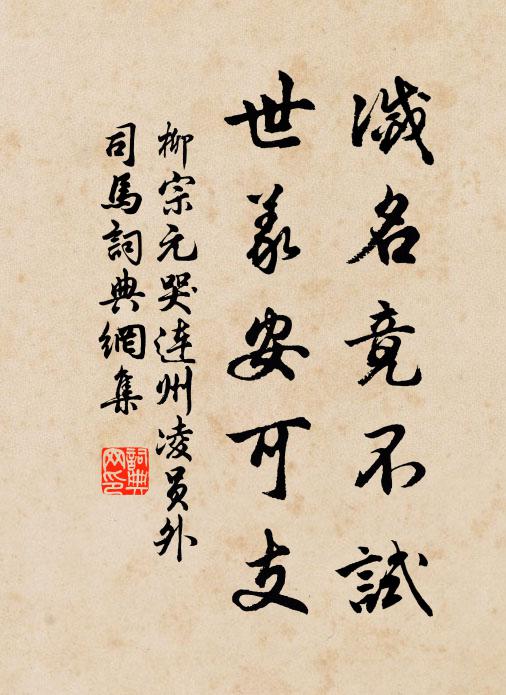 滅名竟不試
世義安可支
柳宗元哭連州凌員外
司馬詞典網集
詞典
网印